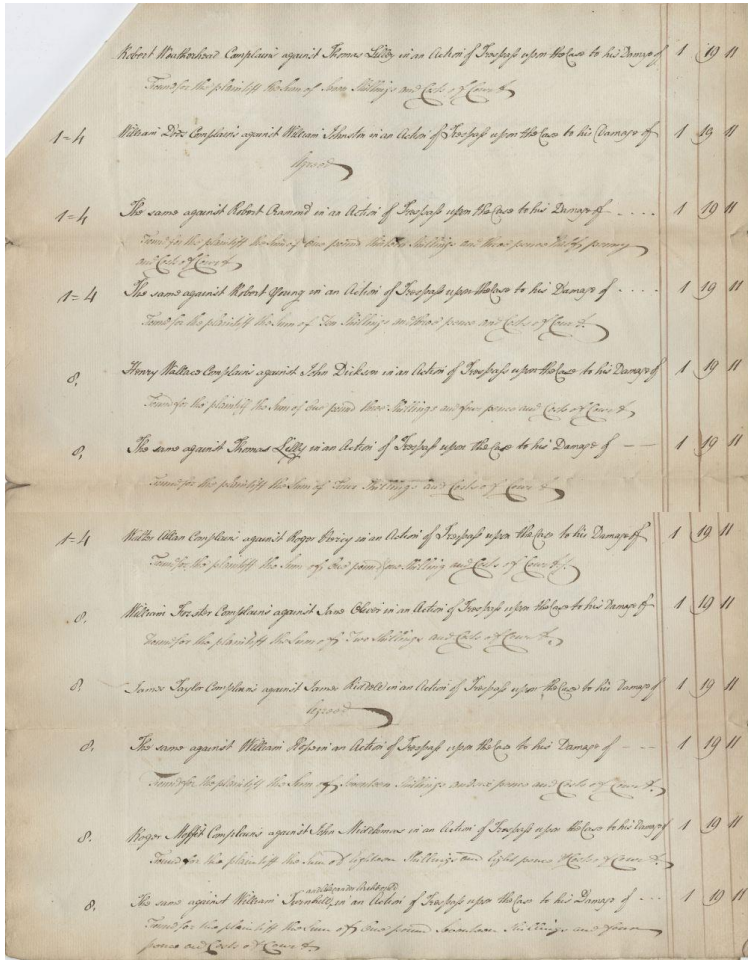 Robert Weatherhead Complains against Thomas Lilley in an Action of Trespass upon the Case to his Damage of 1 19 11
Found for the plaintiff the Sum of Seven Shillings and Costs of Court
1=4 William Dods Complains against William Johnston in an Action of Trespass upon the Case to his Damage of 1 19 11
Agreed
1=4 The same against Robert in an Action of Trespass upon the Case to his Damage of .... 1 19 11
Found for the plaintiff the Sum of One pound Shillings and three pence half penny
and Costs of Court
1=4 The same against Robert Young in an Action of Trespass upon the Case to his Damage of .... 1 19 11
Found for the plaintiff the Sum of Ten Shillings and three pence and Costs of Court.
8. Henry Wallace Complains against John Dickson in an Action of Trespass upon the Case to his Damage of 1 19 11
Found for the plaintiff the Sum of One pound three Shillings and four pence and Costs of Court
8. The same against Thomas Lilly in an Action of Trespass upon the Case to his Damage of — — 1 19 11
Found for the plaintiff the Sum of Four Shillings and Costs of Court
1=4 Walter Allan Complains against Roger in an Action of Trespass upon the Case to his Damage of 1 19 11
Found for the plaintiff the Sum of One pound one Shilling and Costs of Court.
8. William Forster Complains against Jane Oliver in an Action of Trespass upon the Case to his Damage of 1 19 11
Found for the plaintiff the Sum of Two Shillings and Costs of Court.
8. James Taylor Complains against James Riddele in an Action of Trespass upon the Case to his Damage of 1 19 11
Agreed
8. The same against William Ross in an Action of Trespass upon the Case to his Damage of — — 1 19 11
Found for the plaintiff the Sum of Seventeen Shillings and six pence and Costs of Court.
8. Roger Moffit Complains against John in an Action of Trespass upon the Case to his Damage of 1 19 11
Found for the plaintiff the Sum of Eighteen Shillings and Eight pence & Costs of Court.
and Alexander
8. The same against William Turnbull in an Action of Trespass upon the Case to his Damage of ... 1 19 11
Found for the plaintiff the Sum of One pound Seventeen Shillings and
pence and Costs of Court